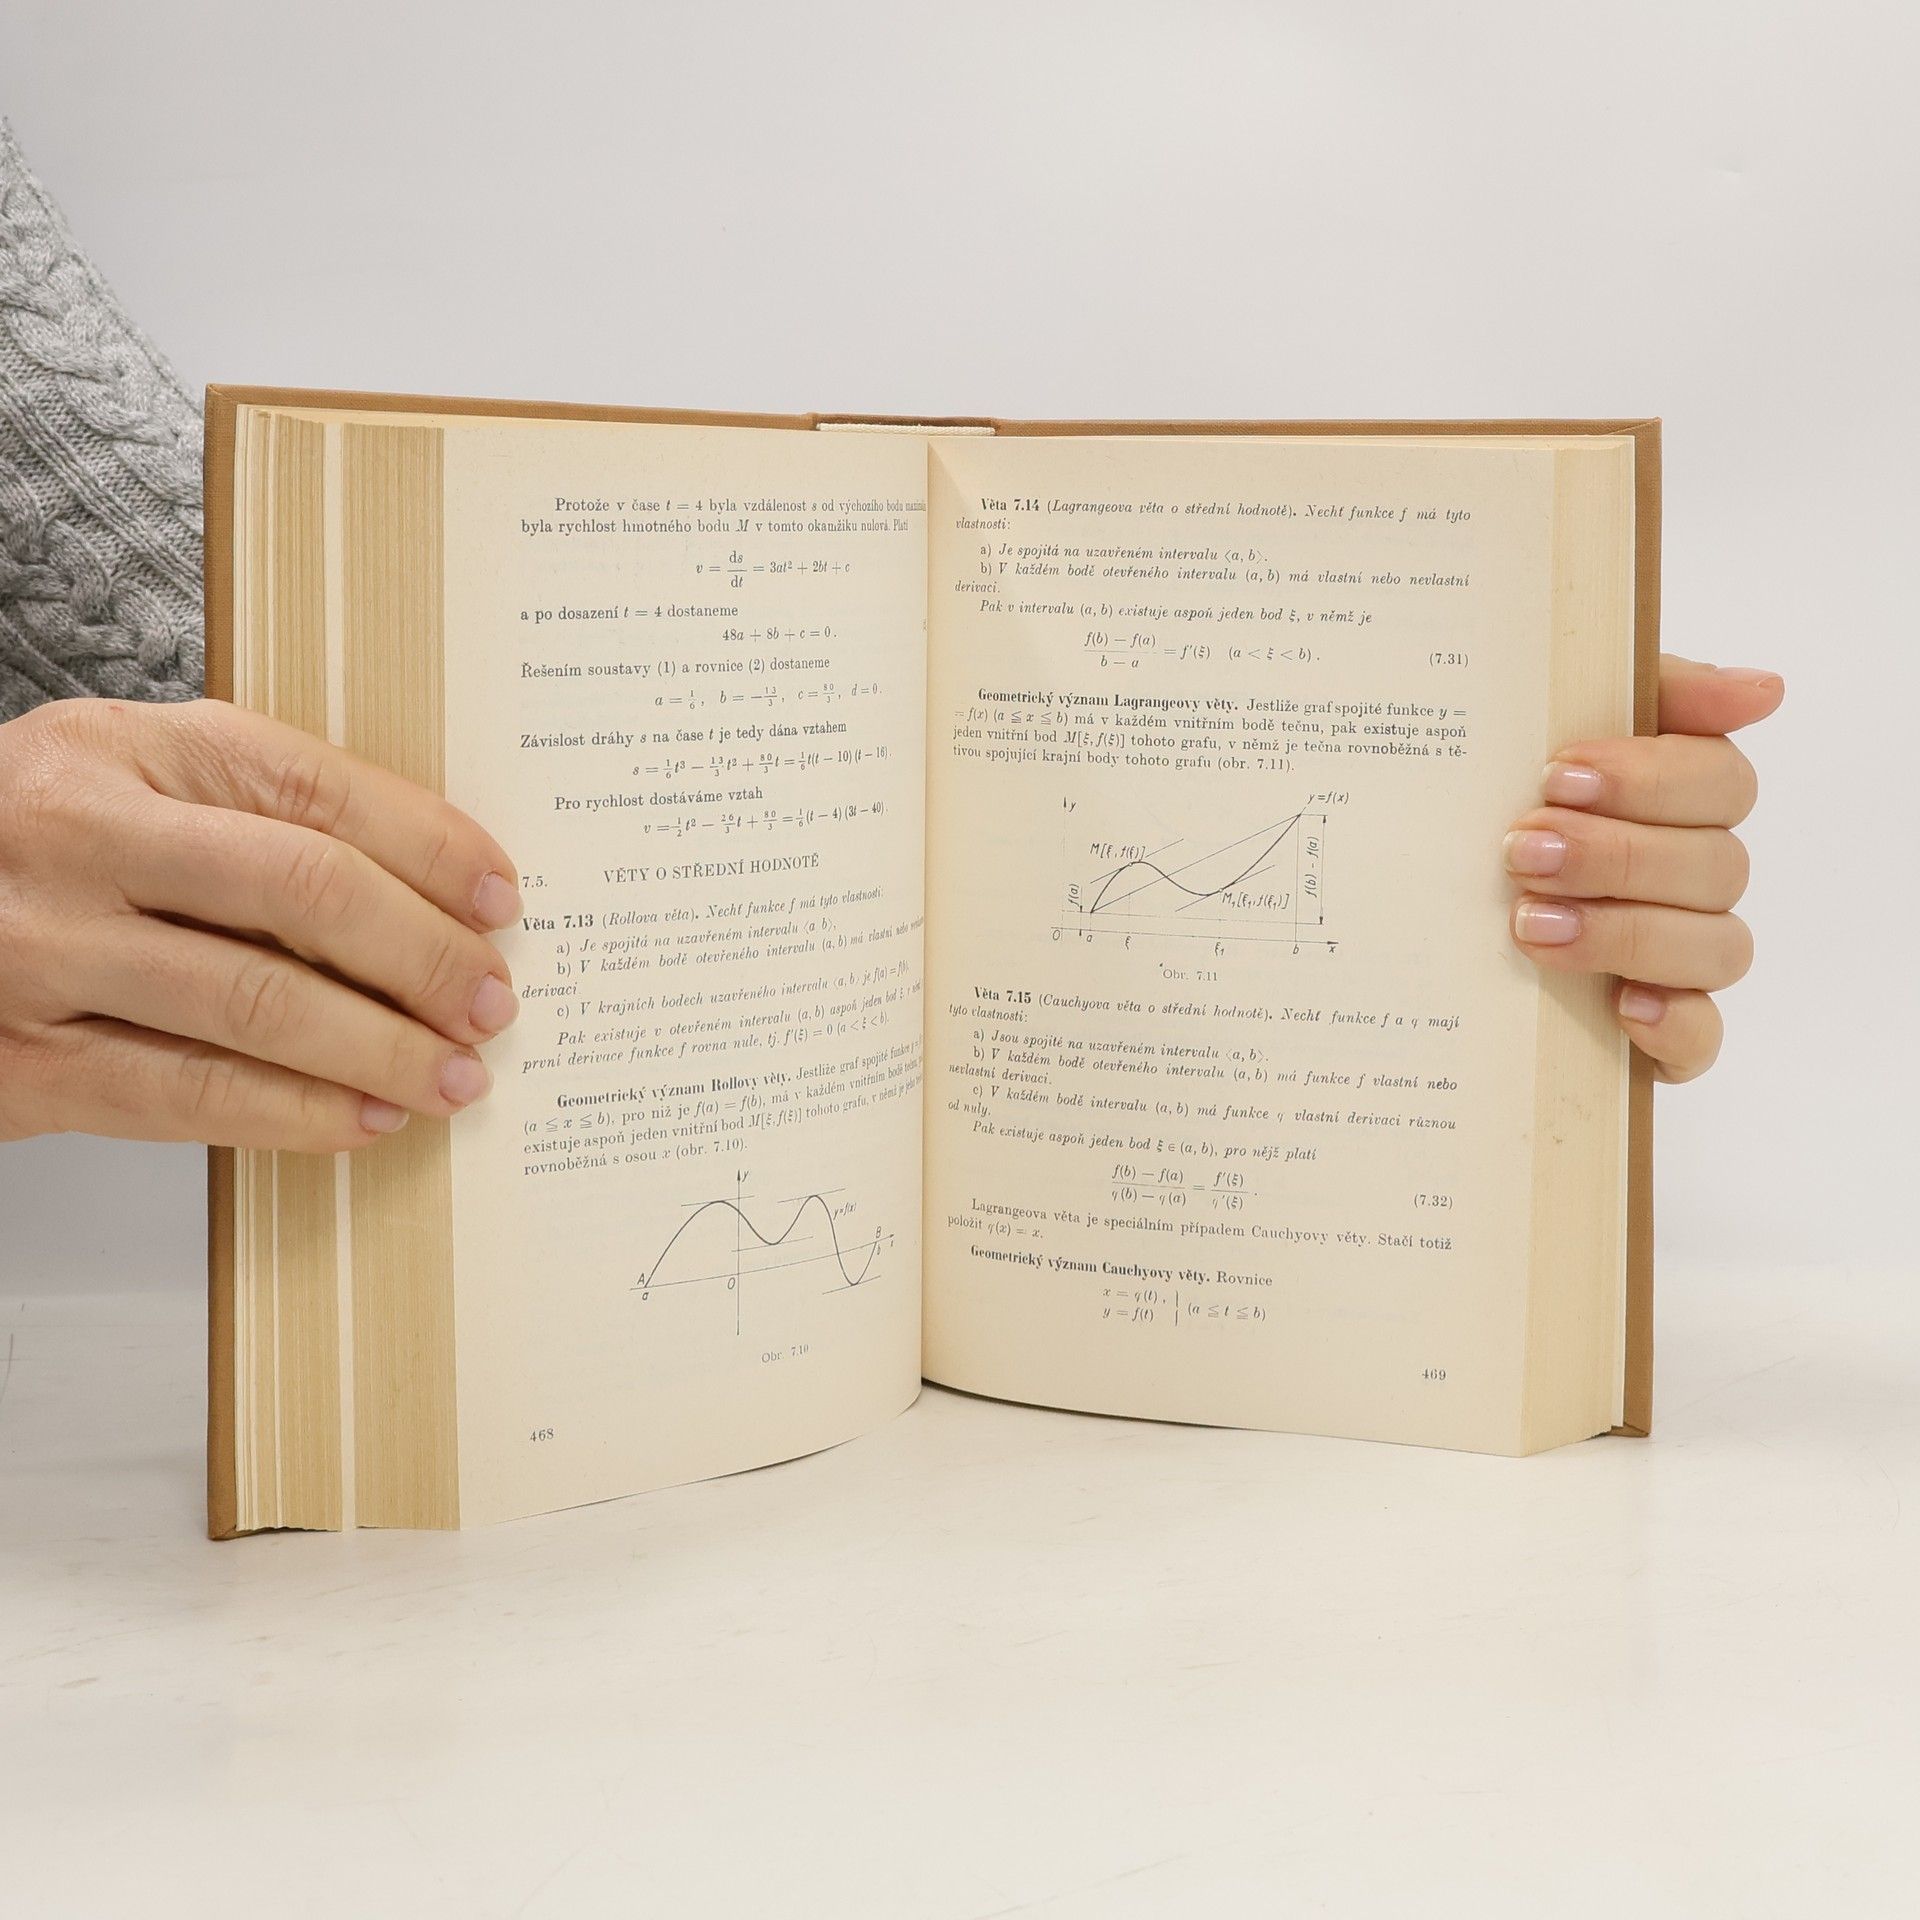 Protože v čase t = 4 byla vzdálenost s od výchozího bodu
byla rychlost hmotného bodu M v tomto okamžiku nulová. Platí
v = ds/dt = 3at² + 2bt + c
a po dosazení t = 4 dostaneme
48a + 8b + c = 0.
Řešením soustavy (1) a rovnice (2) dostaneme
a = 1/6, b = −13/3, c = 80/3, d = 0.
Závislost dráhy s na čase t je tedy dána vztahem
s = 1/6 t³ − 13/3 t² + 80/3 t = 1/6 t(t − 10)(t − 16).
Pro rychlost dostáváme vztah
v = 1/2 t² − 26/3 t + 80/3 = 1/6 (t − 4)(3t − 40).
7.5. VĚTY O STŘEDNÍ HODNOTĚ
Věta 7.13 (Rollova věta). Nechť funkce f má tyto vlastnosti:
a) Je spojitá na uzavřeném intervalu ⟨a b⟩,
b) V každém bodě otevřeného intervalu (a, b) má vlastní nebo
derivaci
c) V krajních bodech uzavřeného intervalu ⟨a, b⟩ je f(a) = f(b).
Pak existuje v otevřeném intervalu (a, b) aspoň jeden bod ξ, v
první derivace funkce f rovna nule, tj. f′(ξ) = 0 (a < ξ < b).
Geometrický význam Rollovy věty. Jestliže graf spojité funkce
(a ≦ x ≦ b), pro niž je f(a) = f(b), má v každém vnitřním bodě tečnu,
existuje aspoň jeden vnitřní bod M[ξ, f(ξ)] tohoto grafu, v němž je
rovnoběžná s osou x (obr. 7.10).
y
y=f(x)
A
B
a
O
b
Obr. 7.10
468
Věta 7.14 (Lagrangeova věta o střední hodnotě). Nechť funkce f má tyto
vlastnosti:
a) Je spojitá na uzavřeném intervalu ⟨a, b⟩.
b) V každém bodě otevřeného intervalu (a, b) má vlastní nebo nevlastní
derivaci.
Pak v intervalu (a, b) existuje aspoň jeden bod ξ, v němž je
(f(b) − f(a))/(b − a) = f′(ξ) (a < ξ < b). (7.31)
Geometrický význam Lagrangeovy věty. Jestliže graf spojité funkce y =
= f(x) (a ≦ x ≦ b) má v každém vnitřním bodě tečnu, pak existuje aspoň
jeden vnitřní bod M[ξ, f(ξ)] tohoto grafu, v němž je tečna rovnoběžná s tě-
tivou spojující krajní body tohoto grafu (obr. 7.11).
y
y=f(x)
M[ξ, f(ξ)]
f(b) - f(a)
f(a)
M₁[ξ₁, f(ξ₁)]
O a ξ ξ₁ b x
Obr. 7.11
Věta 7.15 (Cauchyova věta o střední hodnotě). Nechť funkce f a φ mají
tyto vlastnosti:
a) Jsou spojité na uzavřeném intervalu ⟨a, b⟩.
b) V každém bodě otevřeného intervalu (a, b) má funkce f vlastní nebo
nevlastní derivaci.
c) V každém bodě intervalu (a, b) má funkce φ vlastní derivaci různou
od nuly.
Pak existuje aspoň jeden bod ξ ∈ (a, b), pro nějž platí
(f(b) − f(a))/(φ(b) − φ(a)) = f′(ξ)/φ′(ξ). (7.32)
Lagrangeova věta je speciálním případem Cauchyovy věty. Stačí totiž
položit φ(x) = x.
Geometrický význam Cauchyovy věty. Rovnice
x = φ(t),
y = f(t) } (a ≦ t ≦ b)
469